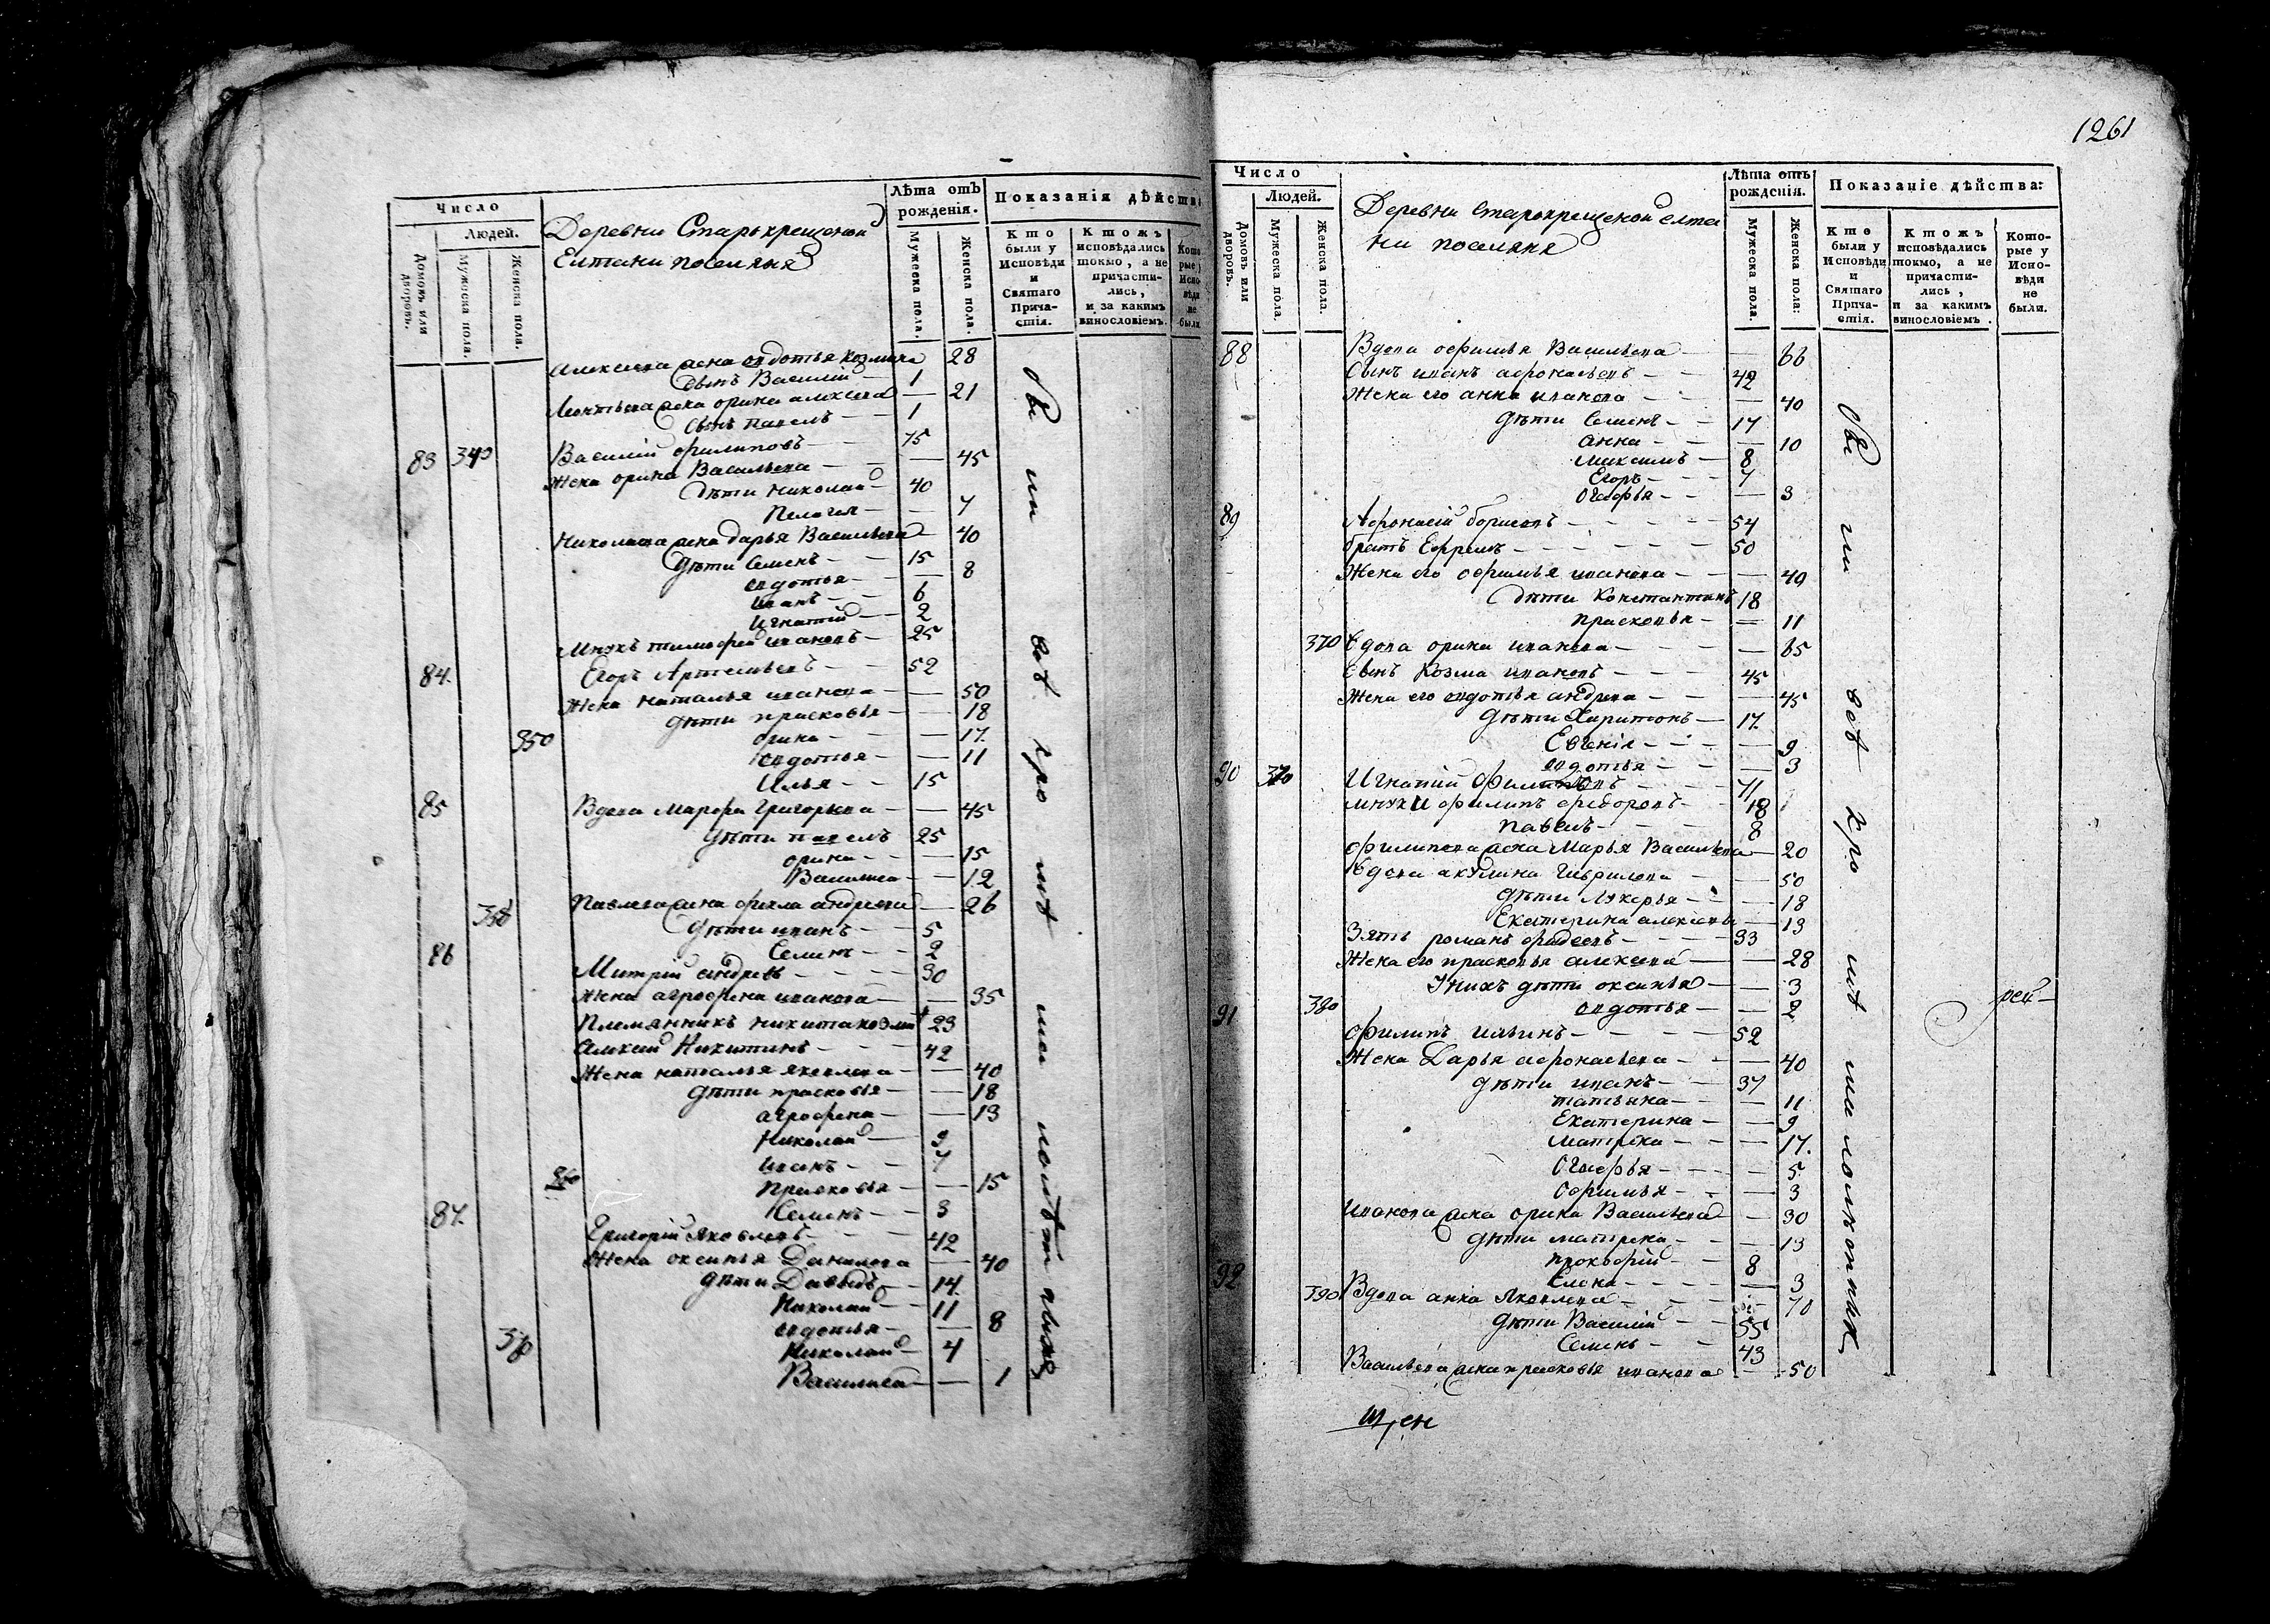 1261
Число
Людей.
Домовъ или дворовъ.
Мужеска пола.
Женска пола.
Деревни Старокрещеной
Елтани поселяня
Лѣта отъ рожденія.
Мужеска пола.
Женска пола.
Показанія дѣйств
Кто были у Исповѣди и Святаго Прича-стія.
Ктожъ исповѣдались токмо, а не причасти-лись, и за какимъ винословіемъ.
Кото рые у Испо-вѣди не были
Алексеева жена овдотья козмина — 28
сынъ Василій — 1
Леонтьева жена орина алексеева — 21
сынъ павелъ — 1
83 340 Василий филиповъ — 75
Жена орина Васильева — 45
дѣти николай — 40
Пелагея — 7
Николаева жена дарья Васильева — 40
дѣти Семенъ — 15
овдотья — 8
иванъ — 6
игнатий — 2
Внукъ тимофей ивановъ — 25
84. Егоръ Артемьевъ — 52
Жена наталья иванова — 50
дѣти прасковья — 18
350 орина — 17.
овдотья — 11
Илья — 15
85 Вдова Марфа Григорьева — 45
дѣти павелъ 25
орина — 15
Василиса — 12
Павлова жена фекла андреева — 26
дѣти иванъ — 5
86 Семенъ — 2
Митрій андреевъ — 30
Жена агрофена иванова — 35
Племянникъ никита козминъ 23
Алексей Никитинъ — 42
Жена наталья яковлева — 40
дѣти прасковья — 18
агрофена — 13
Николай — 9
иванъ — 7
360 Прасковья — 15
Семенъ — 3
87. Григорій Яковлевъ — 42
Жена оксинья Данилова — 40
дѣти Давыдъ — 14.
Николай — 11
овдотья — 8
Николай — 4
Василиса — 1
Число
Людей.
Домовъ или дворовъ.
Мужеска пола.
Женска пола.
Деревни Старокрещеной елта
ни поселяня
Лѣта отъ рожденія.
Мужеска пола.
Женска пола:
Показаніе дѣйства:
Кто были у Исповѣди и Святаго Прича-стія.
Ктожъ исповѣдались токмо, а не причасти-лись, и за какимъ винословіемъ.
Кото-рые у Испо-вѣди не были.
88 Вдова офимья Васильева — 66
Сынъ иванъ афонасьевъ — 42
Жена его анна иванова — 40
дѣти Семенъ — 17
анна — 10
Максимъ — 8
Егоръ — 7
Огафья — 3
89 Афонасій борисовъ — 54
братъ Ефремъ — 50
Жена его офимья иванова — 49
дѣти Константинъ 18
прасковья — 11
370 Вдова орина иванова — 65
Сынъ Козма ивановъ — 45
Жена его овдотья андреева — 45
дѣти Харитонъ — 17.
Евгенія — 9
овдотья — 3
90 370 Игнатий Филиповъ — 71
внуки филипъ федоровъ — 18
павелъ — 8
Филипова жена Марья Васильева — 20
Вдова акулина Гаврилова — 50
дѣти Лукерья — 18
Екатерина алексеева — 13
Зять романъ фадеевъ — 33
Жена его прасковья алексеева — 28
У нихъ дѣти оксинья — 3
380 овдотья — 2
91 филипъ ильинъ — 52
Жена Дарья афонасьева — 40
дѣти иванъ — 37
татьяна — 11
Екатерина — 9
Матрена — 17.
Огафья — 5
Офимья — 3
Иванова жена орина Васильева — 30
дѣти матрена — 13
прокофий — 8
Елена — 3
92 390 Вдова анна Яковлева — 70
дѣти Василий — 55
Семенъ — 43
Васильева жена прасковья иванова — 50